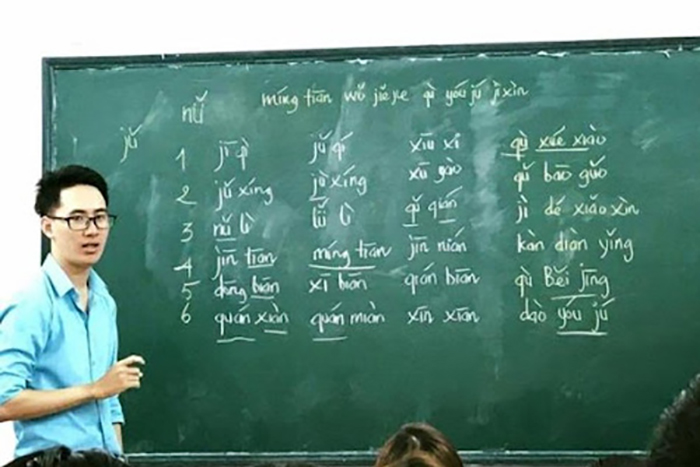 nǚ
míng tiān wǒ jiějie qù yóu jú jì xìn
jǔ
1 jī qì jǔ qí xiū xi qù xué xiào
2 jǔ xíng jǔ xíng xū yào qǔ bāo guǒ
3 nǔ lì lǚ lì qǔ qián jì dé xiǎo xìn
4 jīn tiān míng tiān jīn nián kàn diàn yǐng
5 dōng biān xī biān qián biān qù Běi jīng
6 quán xiàn quán miàn xīn xiān dào yóu jú